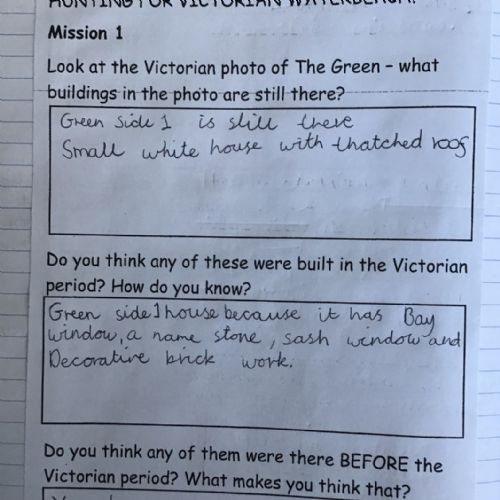 HUNTING FOR VICTORIAN WATERBEACH!
Mission 1
Look at the Victorian photo of The Green – what
buildings in the photo are still there?
Green Side 1 is still there
Small white house with thatched roof
Do you think any of these were built in the Victorian
period? How do you know?
Green side 1 house because it has Bay
window, a name stone, sash window and
Decorative brick work.
Do you think any of them were there BEFORE the
Victorian period? What makes you think that?